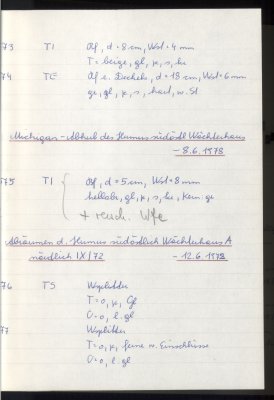 73 TI Rf, d = 8 cm, Wst = 4 mm
T = beige, gl, k, s, he
74 TC Rf e. Deckels, d = 18 cm, Wst = 6 mm
ge, gl, k, s, hart, w. St
Michigan - Abhub des Humus südöstl Wächterhaus
- 8.6.1978
75 TI Rf, d = 5 cm, Wst = 8 mm
hellobr, gl, k, s, he, Kern. ge
+ reich. Wfe
Abräumen d. Humus südöstlich Wächterhaus A
nördlich IX/72 - 12.6.1978
76 TS Wsplitter
T = o, k, gl
O = o, l. gl
77 Wsplitter
T = o, k, feine w. Einschlüsse
O = o, l. gl